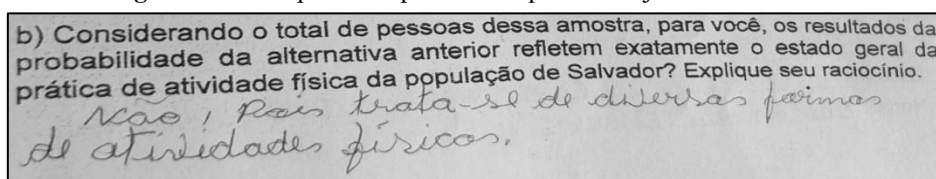 b) Considerando o total de pessoas dessa amostra, para você, os resultados da
probabilidade da alternativa anterior refletem exatamente o estado geral da
prática de atividade física da população de Salvador? Explique seu raciocínio.
Não, Pois trata-se de diversas formas
de atividades físicas.